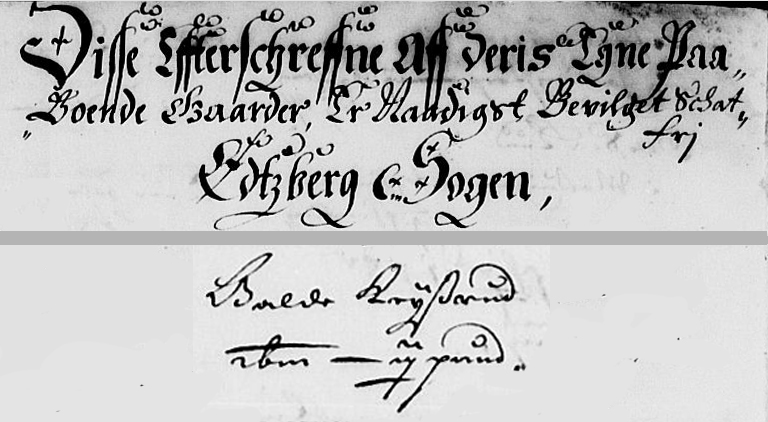 Disse Effterschreffne Aff deris Egne Paa„
„Boende Gaarder, Er Naadigst Bevilget Schat„
frj
Edtzberg Sogen,
Baldr Krÿßrud
ibm — ij pund.